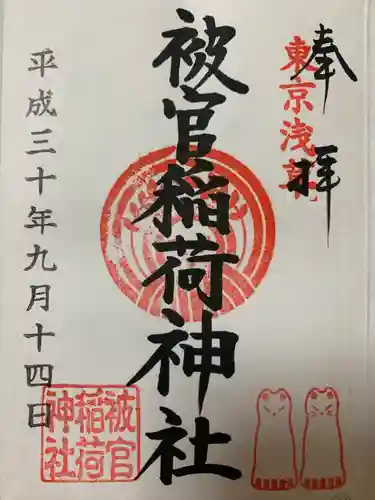 奉拝
東京浅草
被官稲荷神社
平成三十年九月十四日
被官
稲荷
神社